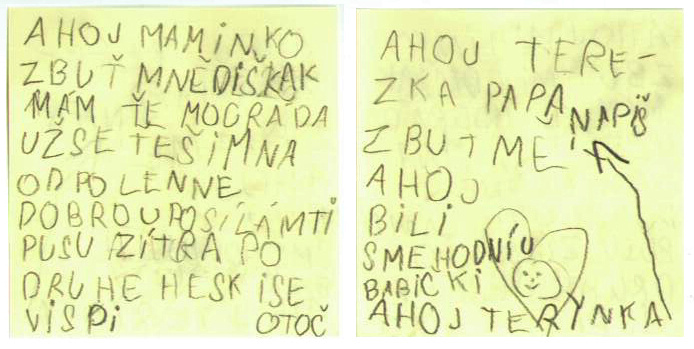 AHOJ MAMINKO
ZBUŤ MNĚ DIŠKAK
MÁM ŤE MOCRÁDA
UŽSE TEŠIMNA
ODPOLENNE
DOBROU POSÍLÁMTI
PUSU ZÍTRA PO
DRUHE HESK ISE
VISPI OTOČ
AHOJ TERE-
ZKA PAPA
NAPIŠ
ZBUTMĚ
AHOJ
BILI
SMEHODNÍU
BABIČKI
AHOJ TERYNKA